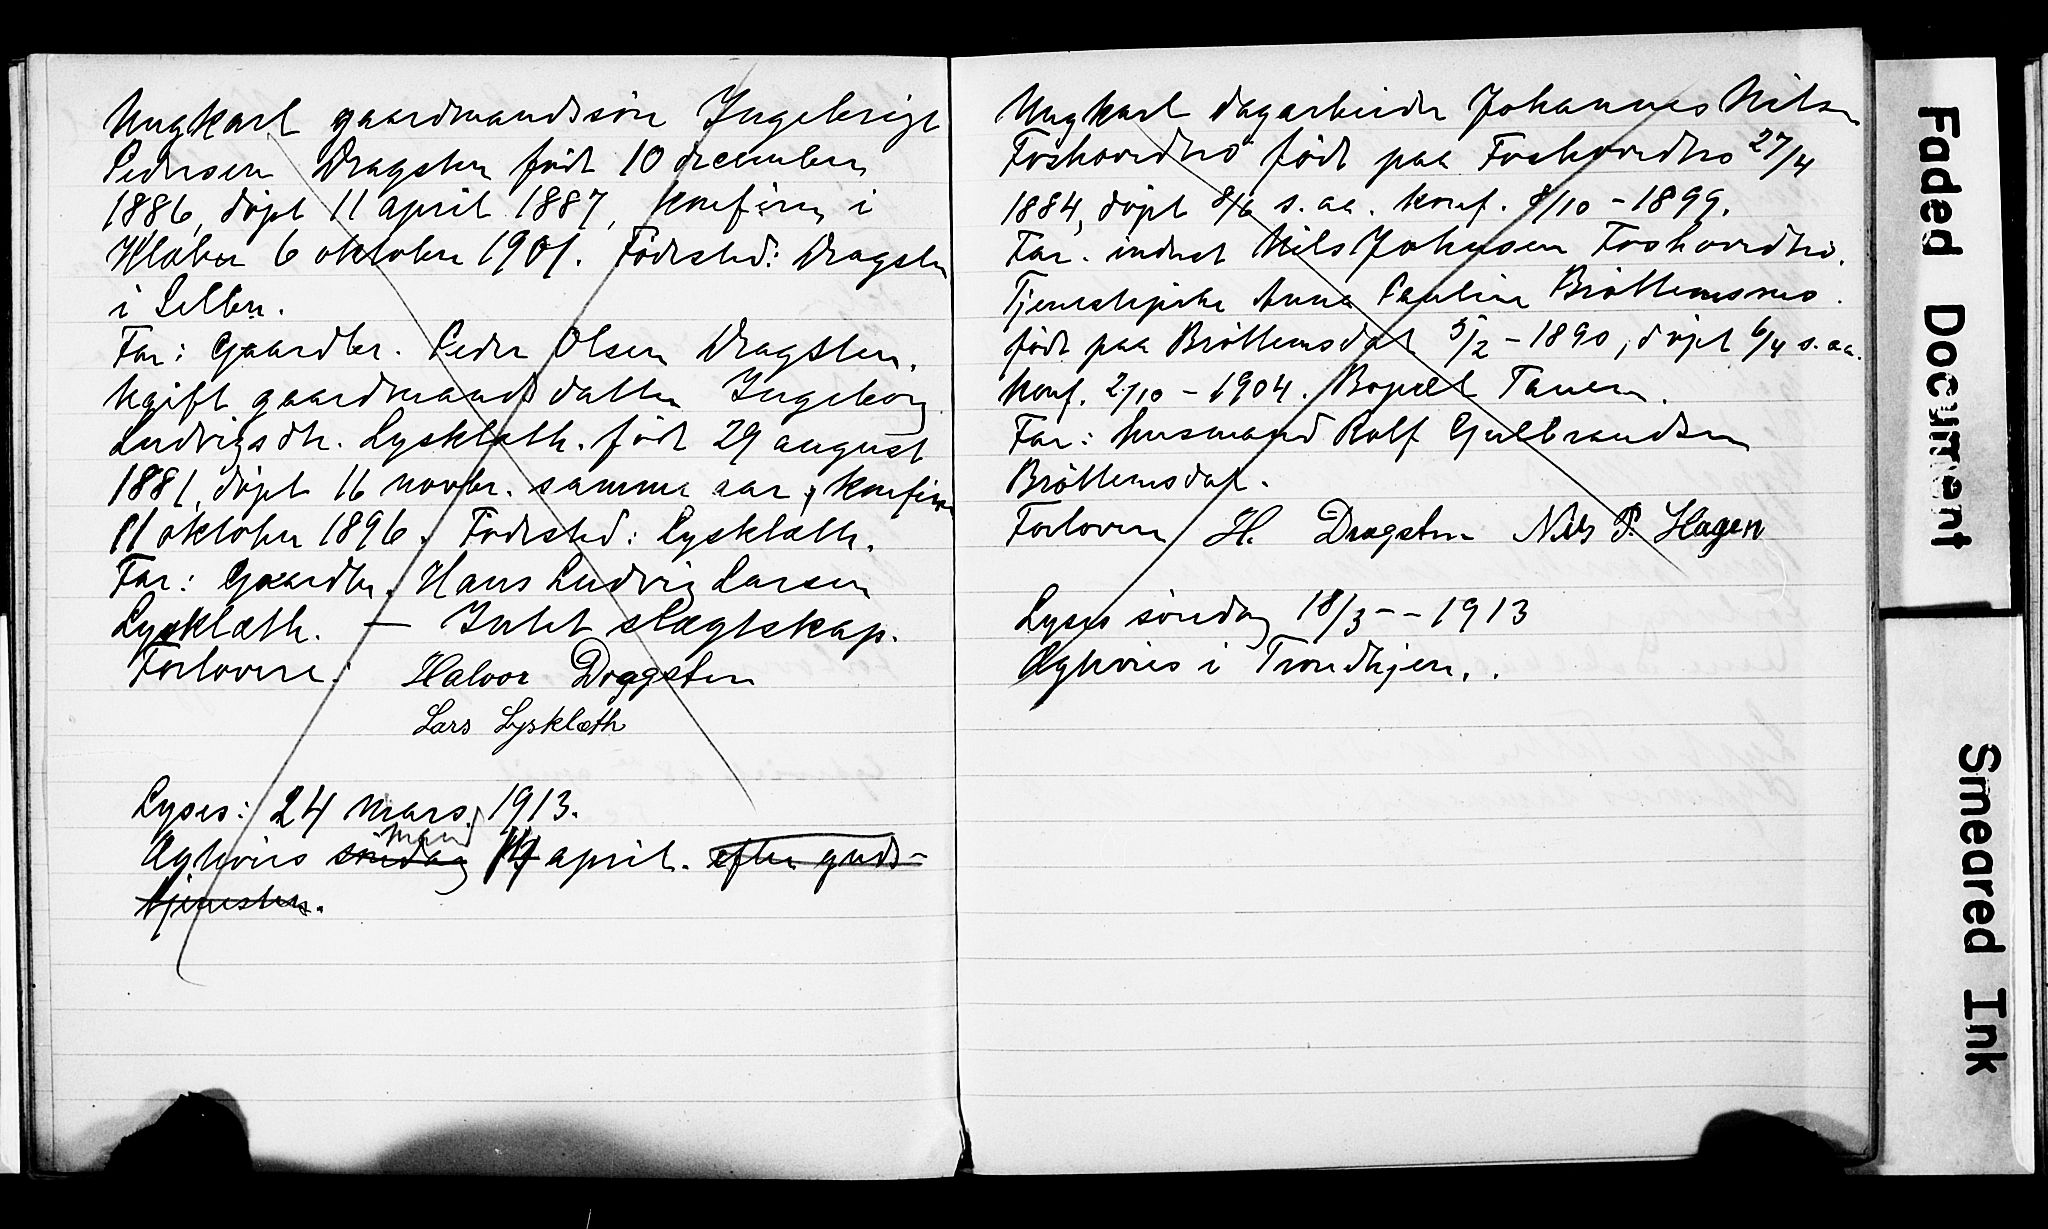 Ungkarl gaardmandssøn Ingebrigt
Pedersen Dragsten født 10 december
1886, døpt 11 april 1887, konfirm i
Klæbu 6 oktober 1901. Fødested: Dragsten
i Selbu.
Far: Gaardbr. Peder Olsen Dragsten.
Ugift gaardmandsdatter Ingeborg
Ludvigsdtr. Lysklæth. født 29 august
1881, døpt 16 novbr. samme aar, konfirm
11 oktober 1896. Fødested: Lysklæth.
Far: Gaardbr. Hans Ludvig Larsen
Lysklæth. — Intet slægtskap.
Forlovere: Halvor Dragsten
Lars Lysklæth
Lyses: 24 mars 1913.
mand
Ægtevies søndag 14 april. efter guds-
tjenesten.
Ungkarl dagarbeider Johannes Nilsen
Foshovedtrø født paa Foshovedtrø 27/4
1884, døpt 8/6 s. aa. konf. 8/10 - 1899.
Far. inderst Nils Johnsen Foshovedtrø.
Tjenestepike Anna Pauline Brøttemsmo.
født paa Brøttemsdal 5/2 - 1890, døpt 6/4 s. aa.
konf. 2/10 - 1904. Bopæl Tanem.
Far: husmand Rolf Gulbrandsen
Brøttemsdal.
Forlovere H. Dragsten Nils P. Hagen
Lyses søndag 18/3 - - 1913
Ægtevies i Trondhjem.
Faded Document
Smeared Ink